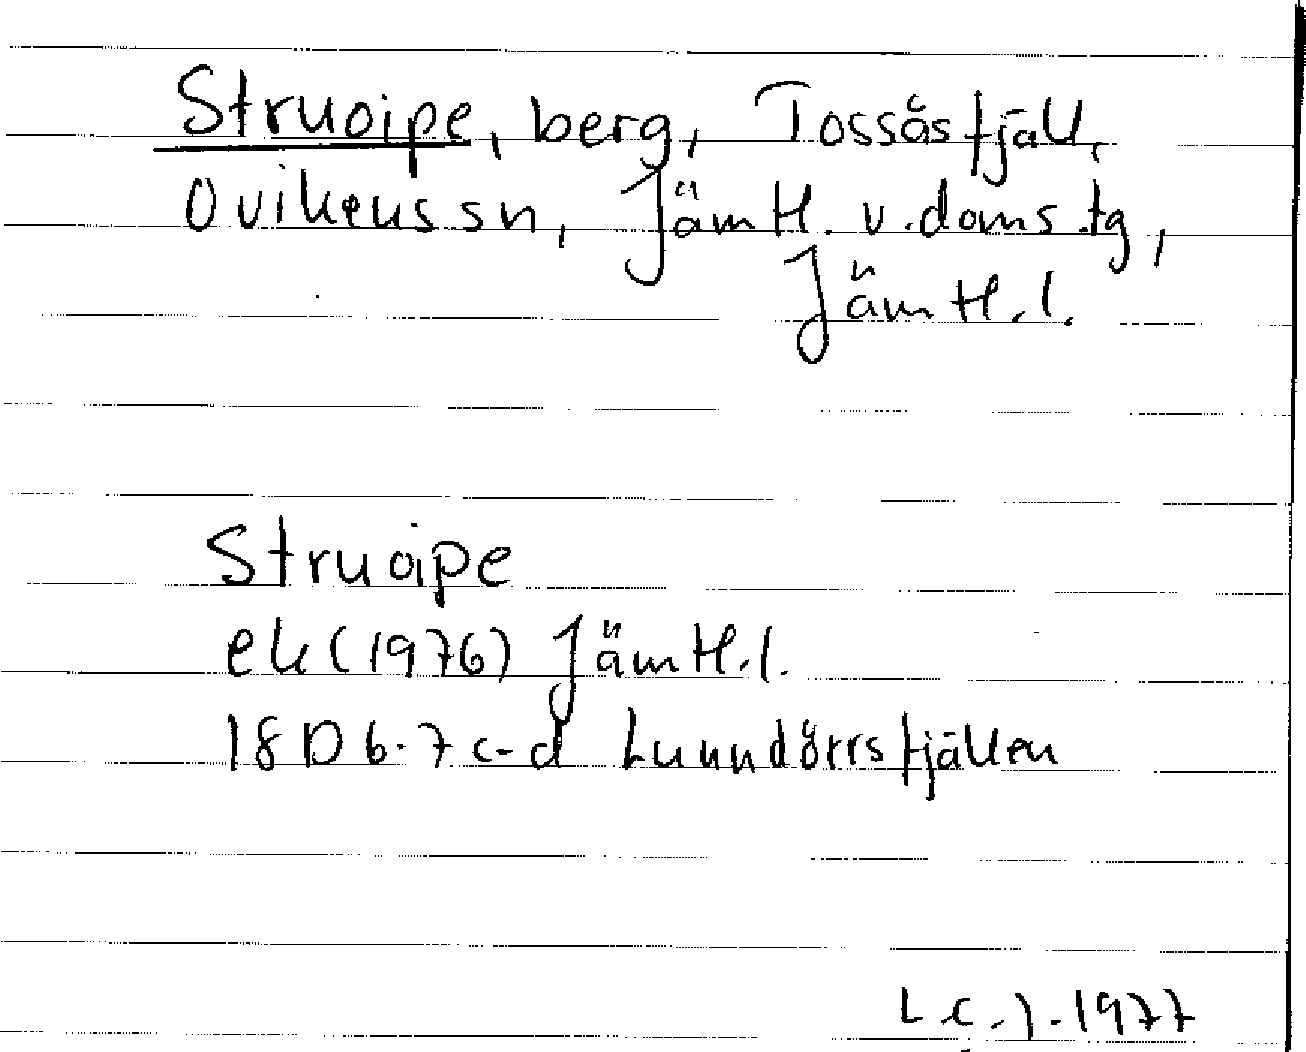 Struoipe, berg, Tossåsfjäll,
Ovikens sn, Jämtl. v. doms.tg,
Jämtl. l.
Struoipe
ek (1976) Jämtl. l.
18 D 6-7 c-d Lunndörrsfjällen
L.C.J. 1977